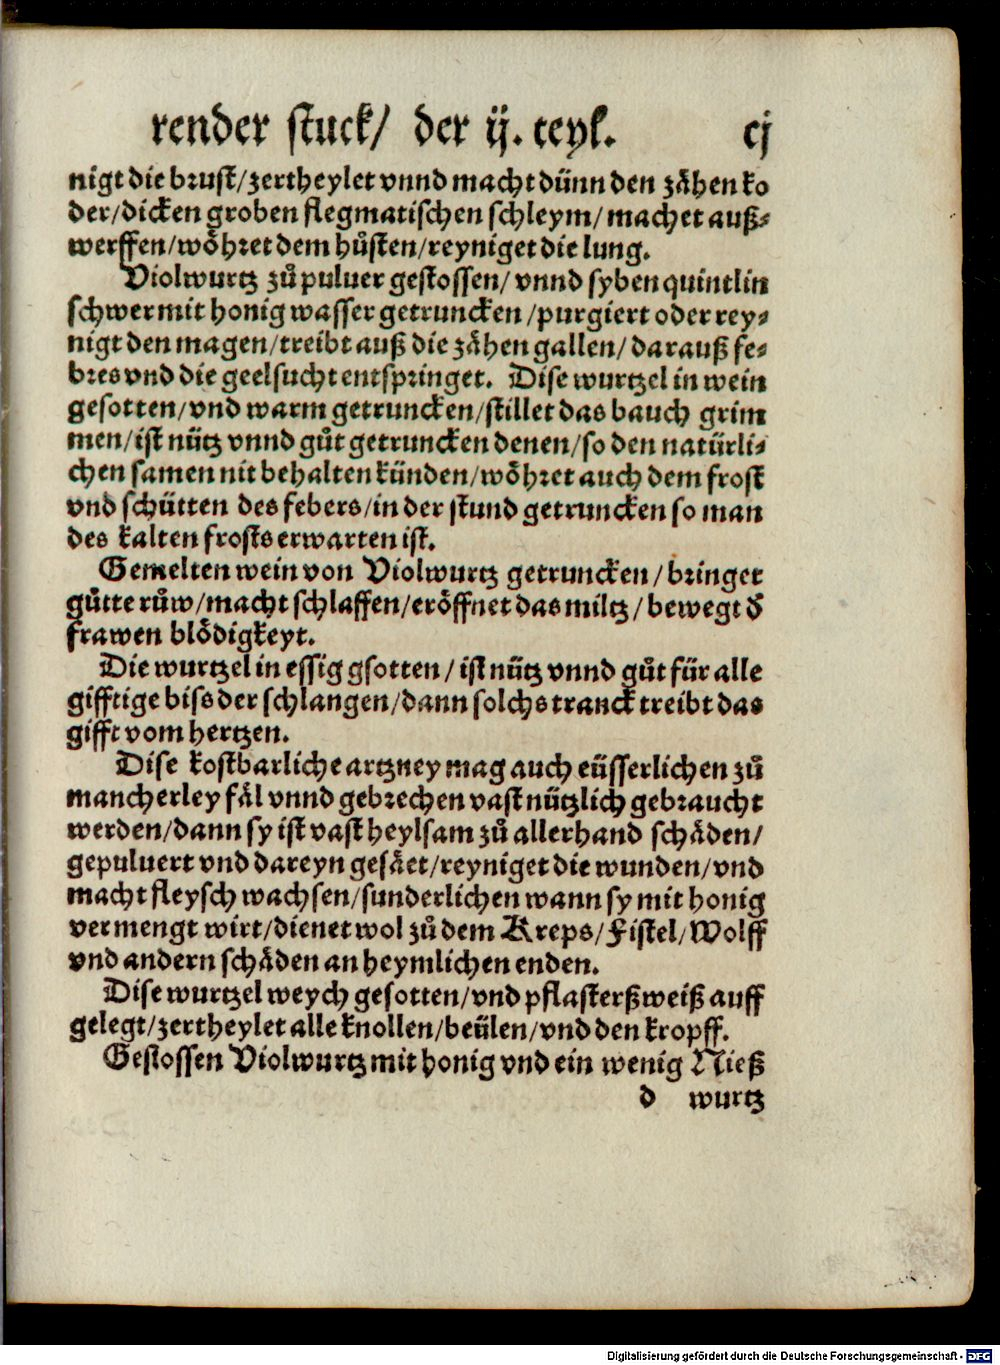 render stuck/ der ij. teyl. cj
nigt die brust/zertheylet vnnd macht dünn den zähen ko
der/dicken groben flegmatischen schleym/machet auß⸗
werffen/wöhret dem hůsten/reyniget die lung.
Violwurtz zů puluer gestossen/ vnnd syben quintlin
schwer mit honig wasser getruncken/purgiert oder rey⸗
nigt den magen/treibt auß die zähen gallen/ darauß fe⸗
bres vnd die geelsucht entspringet. Dise wurtzel in wein
gesotten/vnd warm getruncken/stillet das bauch grim
men/ist nütz vnnd gůt getruncken denen/so den natürli⸗
chen samen nit behalten künden/wöhret auch dem frost
vnd schütten des febers/in der stund getruncken so man
des kalten frosts erwarten ist.
Gemelten wein von Violwurtz getruncken/bringet
gůtte růw/macht schlaffen/eröffnet das miltz/bewegt d̕
frawen blödigkeyt.
Die wurtzel in essig gsotten/ist nütz vnnd gůt für alle
gifftige biss der schlangen/dann solchs tranck treibt das
gifft vom hertzen.
Dise kostbarliche artzney mag auch eüsserlichen zů
mancherley fäl vnnd gebrechen vast nützlich gebraucht
werden/dann sy ist vast heylsam zů allerhand schäden/
gepuluert vnd dareyn gesäet/reyniget die wunden/vnd
macht fleysch wachsen/sunderlichen wann sy mit honig
vermengt wirt/dienet wol zů dem Kreps/Fistel/Wolff
vnd andern schäden an heymlichen enden.
Dise wurtzel weych gesotten/vnd pflasterßweiß auff
gelegt/zertheylet alle knollen/beülen/vnd den kropff.
Gestossen Violwurtz mit honig vnd ein wenig Nieß
d wurtz
Digitalisierung gefördert durch die Deutsche Forschungsgemeinschaft - DFG